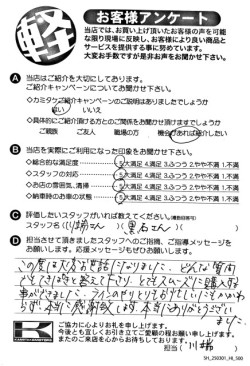 軽
お客様アンケート
当店では、お買い上げ頂いたお客様の声を可能
な限り現場に反映し、お客様により良い商品と
サービスを提供する事に努めています。
大変お手数ですが是非お声をお聞かせ下さい。
A 当店はご紹介を大切にしております。
ご紹介キャンペーンについてお聞かせ下さい。
◇カミタケご紹介キャンペーンのご説明はありましたでしょうか
はい いいえ
◇具体的にご紹介頂ける方とのご関係をお聞かせ頂けますでしょうか
ご親族 ご友人 職場の方 機会があれば紹介したい
B 当店を実際にご利用になった印象をお聞かせ下さい。
◇総合的な満足度 5.大満足 4.満足 3.ふつう 2.やや不満 1.不満
◇スタッフの対応 5.大満足 4.満足 3.ふつう 2.やや不満 1.不満
◇お店の雰囲気、清掃 5.大満足 4.満足 3.ふつう 2.やや不満 1.不満
◇納車時のお車の状態 5.大満足 4.満足 3.ふつう 2.やや不満 1.不満
C 評価したいスタッフがいれば教えてください。(複数回答可)
スタッフ名 (川端さん) (黒石さん)
D 担当させて頂きましたスタッフへのご指摘、ご指導メッセージを
お願いします。応援メッセージもぜひお願いします。
この度は大変お世話になりました。どんな質問
にもすぐに答えて下さり、とてもスムーズに購入する
事ができました。ラインのやりとりもお忙しいにもかかわ
らず、本当に感謝致します。本当にありがとうござい
ました。
K
ご協力に心よりお礼を申し上げます。
今後とも宜しくお引き立てご愛顧の程お願い申し上げます。
またのご来店を心からお待ちしております。
担当( 川端 )
SH_250301_HI_500